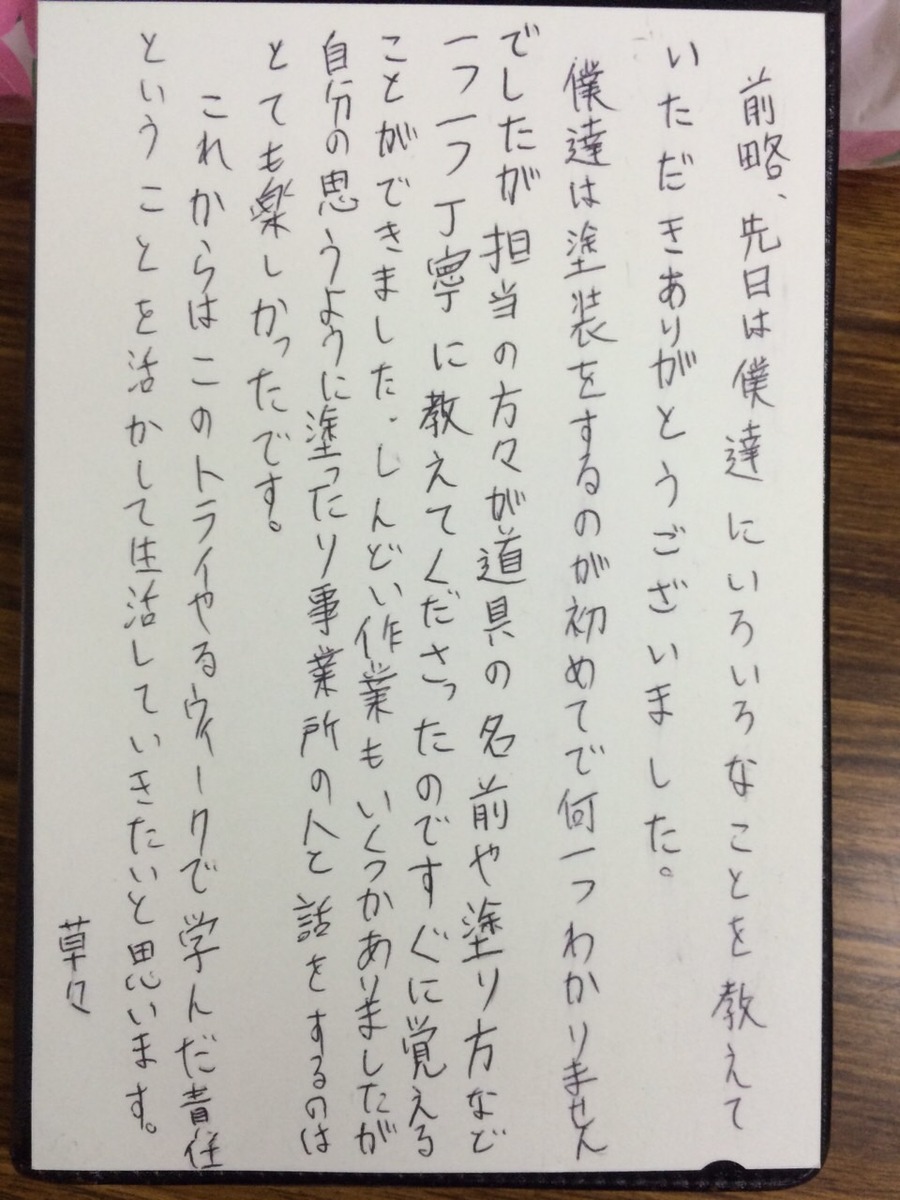 前略、先日は僕達にいろいろなことを教えて
いただきありがとうございました。
僕達は塗装をするのが初めてで何一つわかりません
でしたが担当の方々が道具の名前や塗り方など
一つ一つ丁寧に教えてくださったのですぐに覚える
ことができました。しんどい作業もいくつかありましたが
自分の思うように塗ったり事業所の人と話をするのは
とても楽しかったです。
これからはこのトライやるウィークで学んだ責任
ということを活かして生活していきたいと思います。
草々